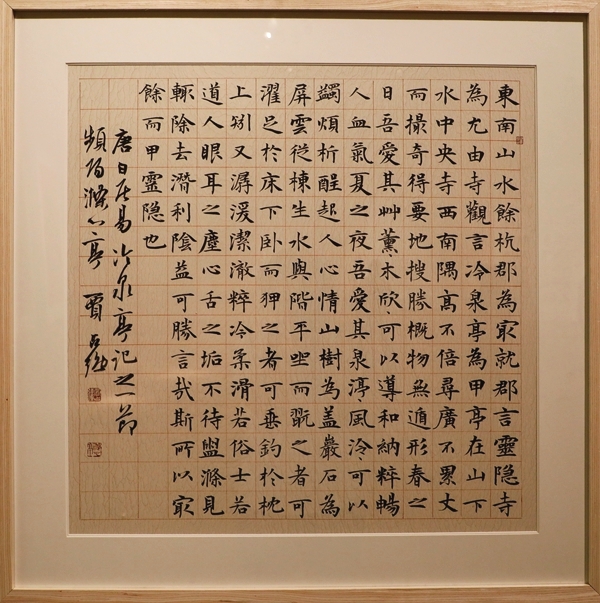 東南山水餘杭郡為冣就郡言靈隱寺
為尤由寺觀言冷泉亭為甲亭在山下
水中央寺西南隅高不倍尋廣不累丈
而撮奇得要地搜勝概物無遁形春之
日吾愛其艸薰木欣可以導和納粹暢
人血氣夏之夜吾愛其泉渟風泠可以
蠲煩析酲起人心情山樹為盖巖石為
屏雲從棟生水與階平坐而翫之者可
濯足於床下卧而狎之者可垂釣於枕
上矧又潺湲潔澈粹冷柔滑若俗士若
道人眼耳之塵心舌之垢不待盥滌見
輒除去潛利陰益可勝言哉斯所以冣
餘而甲靈隱也
唐白居易冷泉亭記之一節
頻陽滌心亭 賈